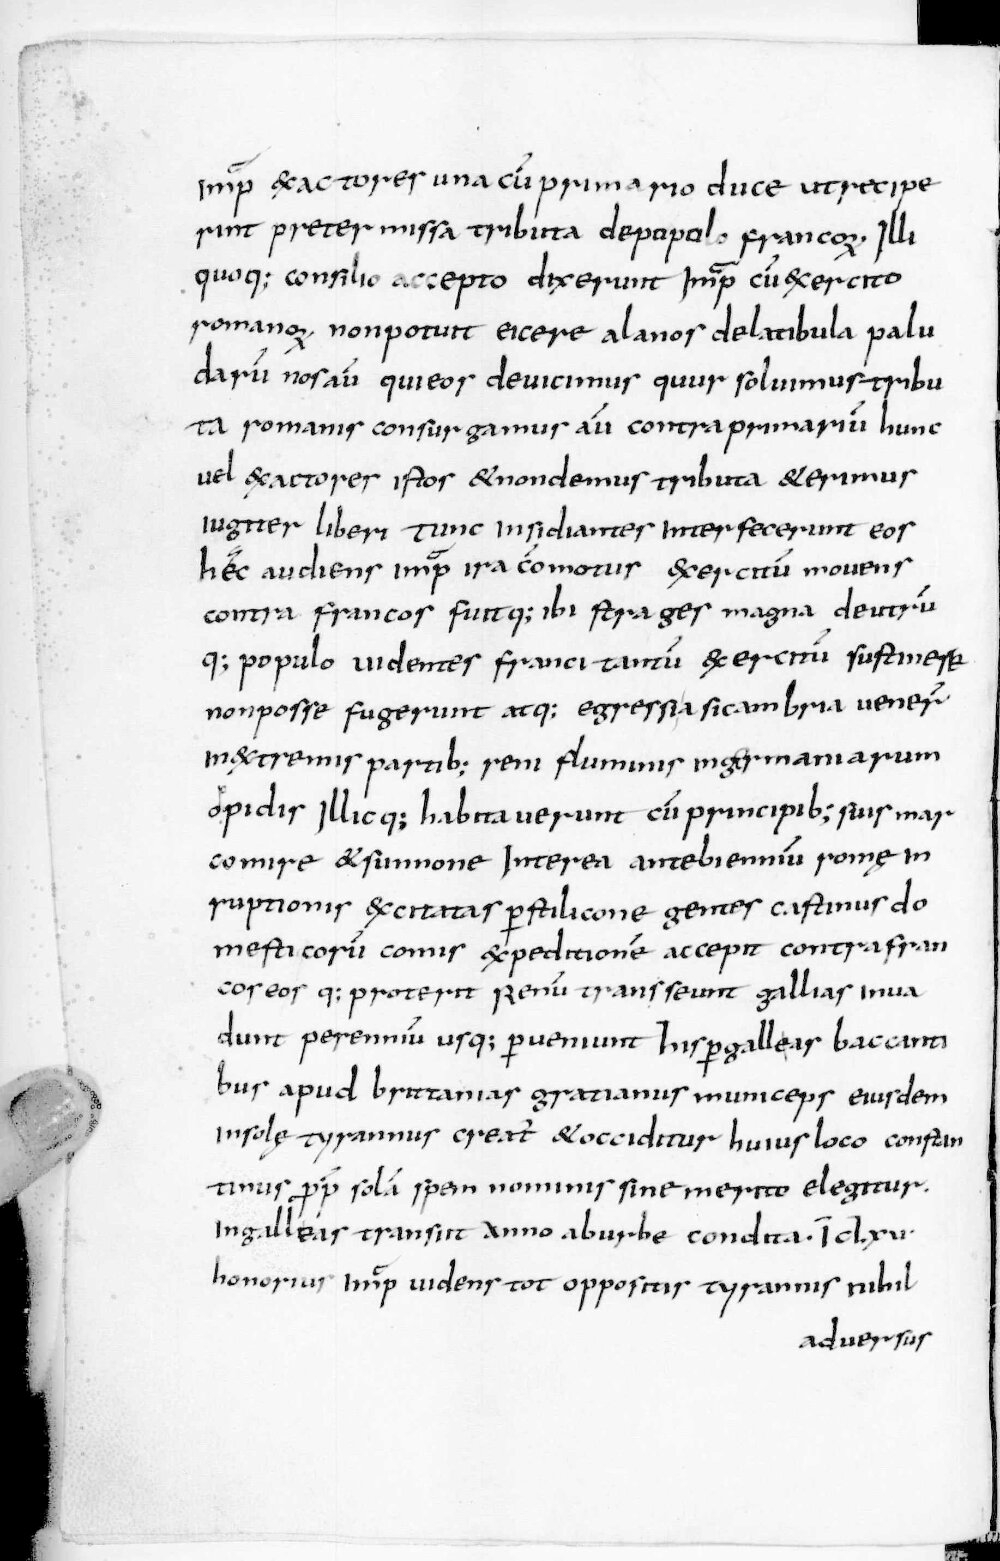 imꝑ &actores una cū primario duce ut recipe
rint preter missa tributa de popolo francoꝝ. Illi
quoq; consilio accepto dixerunt Imꝑ cū exercito
romanoꝝ non potuit eicere alanos de latibula palu
darū nos aū qui eos devicimus quur soluimus tribu
ta romanis consurgamus aū contra primariū hunc
vel exactores istos & non demus tributa & erimus
iugiter liberi tunc insidiantes interfecerunt eos
hęc audiens imꝑ ira cōmotus exercitū movens
contra francos fuitq; ibi strages magna de utrū
q; populo videntes franci tantū exercitū sustinere
non posse fugerunt atq; egressi a sicambria venerͬ
in extremis partib; reni fluminis in germaniarum
opidis Illicq; habitaverunt cū principib; suis mar
comire & sunnone Interea ante bienniū romę in
ruptionis excitatas ꝑ stilicone gentes castinus do
mesticorū comis expeditionē accepit contra fran
cos eos q; proterit Renū transseunt gallias inva
dunt perenniū usq; ꝑveniunt his ꝑ galleas baccanti
bus apud brittanias gratianus municeps eiusdem
insolę tyrannus creat̄ & occiditur huius loco constan
tinus ꝓꝑ solā spem nominis sine merito elegitur.
In galleas transiit Anno ab urbe condita. Ī clxv
honorius imꝑ videns tot oppositis tyrannis nihil
adversus